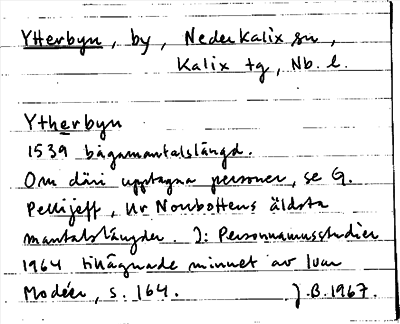 Ytterbyn, by, Nederkalix sn,
Kalix tg, Nb. l.
Ytherbyn
1539 bågamantalslängd.
Om däri upptagna personer, se G.
Pellijeff, Ur Norrbottens äldsta
mantalslängder. I: Personnamnsstudier
1964 tillägnade minnet av Ivar
Modéer, s. 164. J.B. 1967.